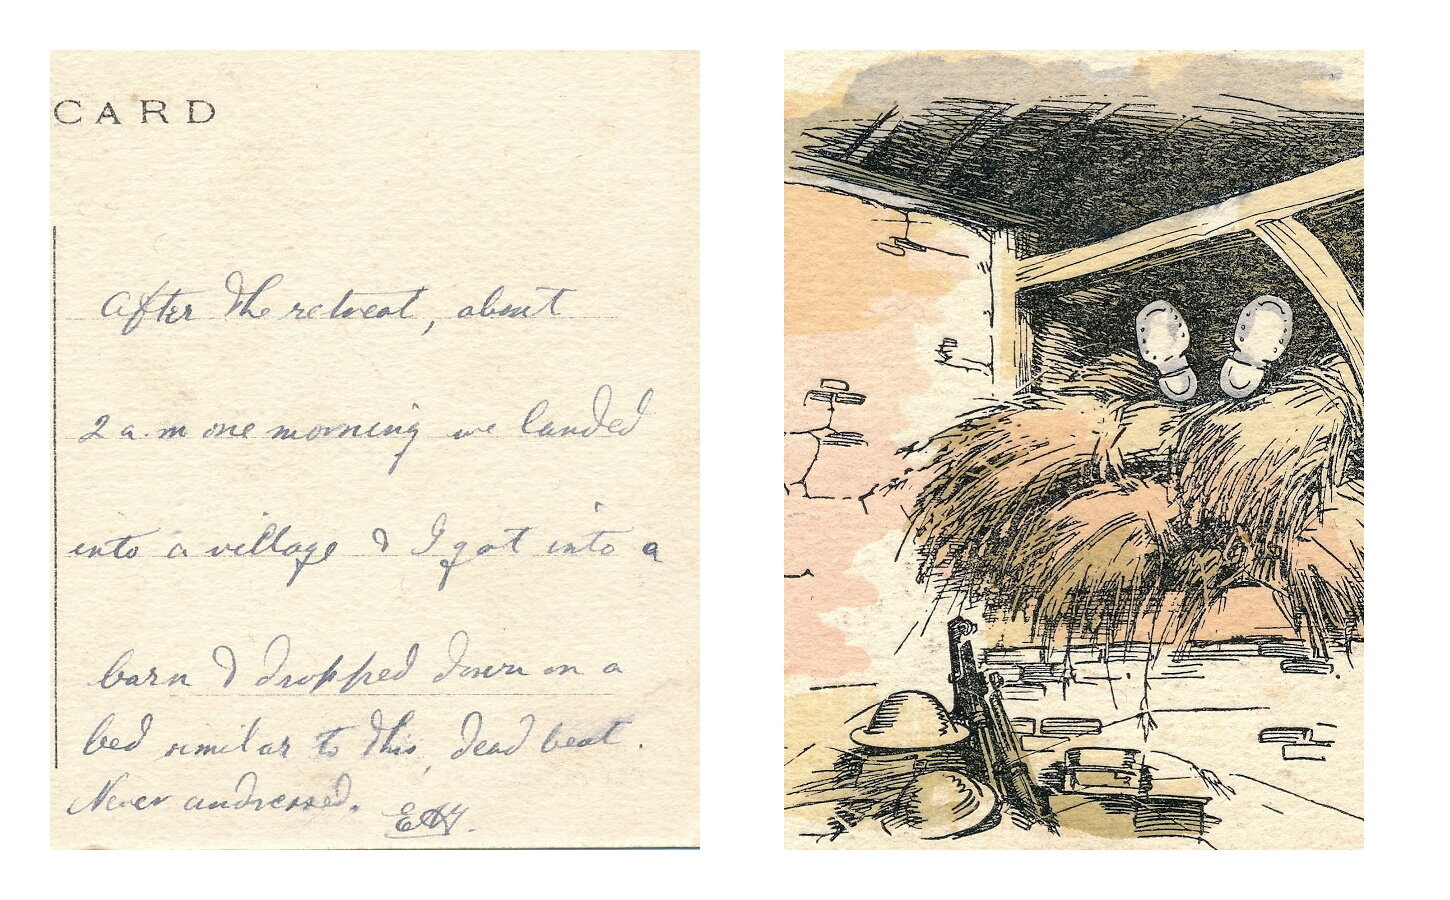 CARD
After the retreat, about
2 a.m one morning we landed
into a village & I got into a
barn & dropped down on a
bed similar to this, dead beat.
Never undressed.